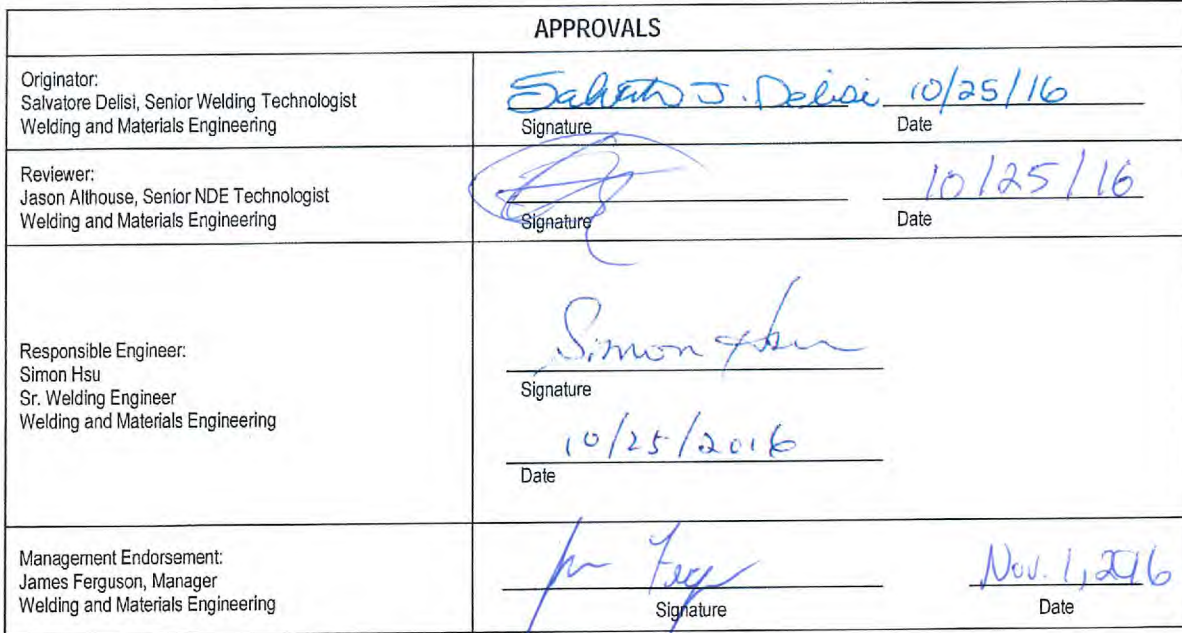 APPROVALS
Originator:
Salvatore Delisi, Senior Welding Technologist
Welding and Materials Engineering
Salvato J. Delisi 10/25/16
Signature Date
Reviewer:
Jason Althouse, Senior NDE Technologist
Welding and Materials Engineering
10/25/16
Signature Date
Responsible Engineer:
Simon Hsu
Sr. Welding Engineer
Welding and Materials Engineering
Simon Hsu
Signature
10/25/2016
Date
Management Endorsement:
James Ferguson, Manager
Welding and Materials Engineering
Nov. 1, 2016
Signature Date